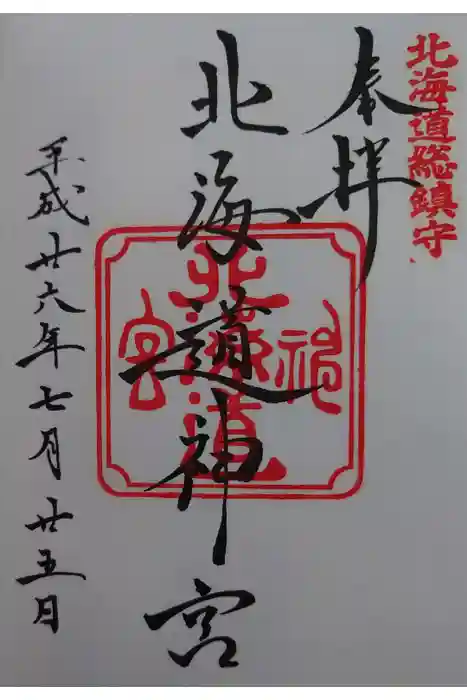 北海道総鎮守
奉拝
北海道神宮
北海道
神宮
平成廿六年七月廿五日